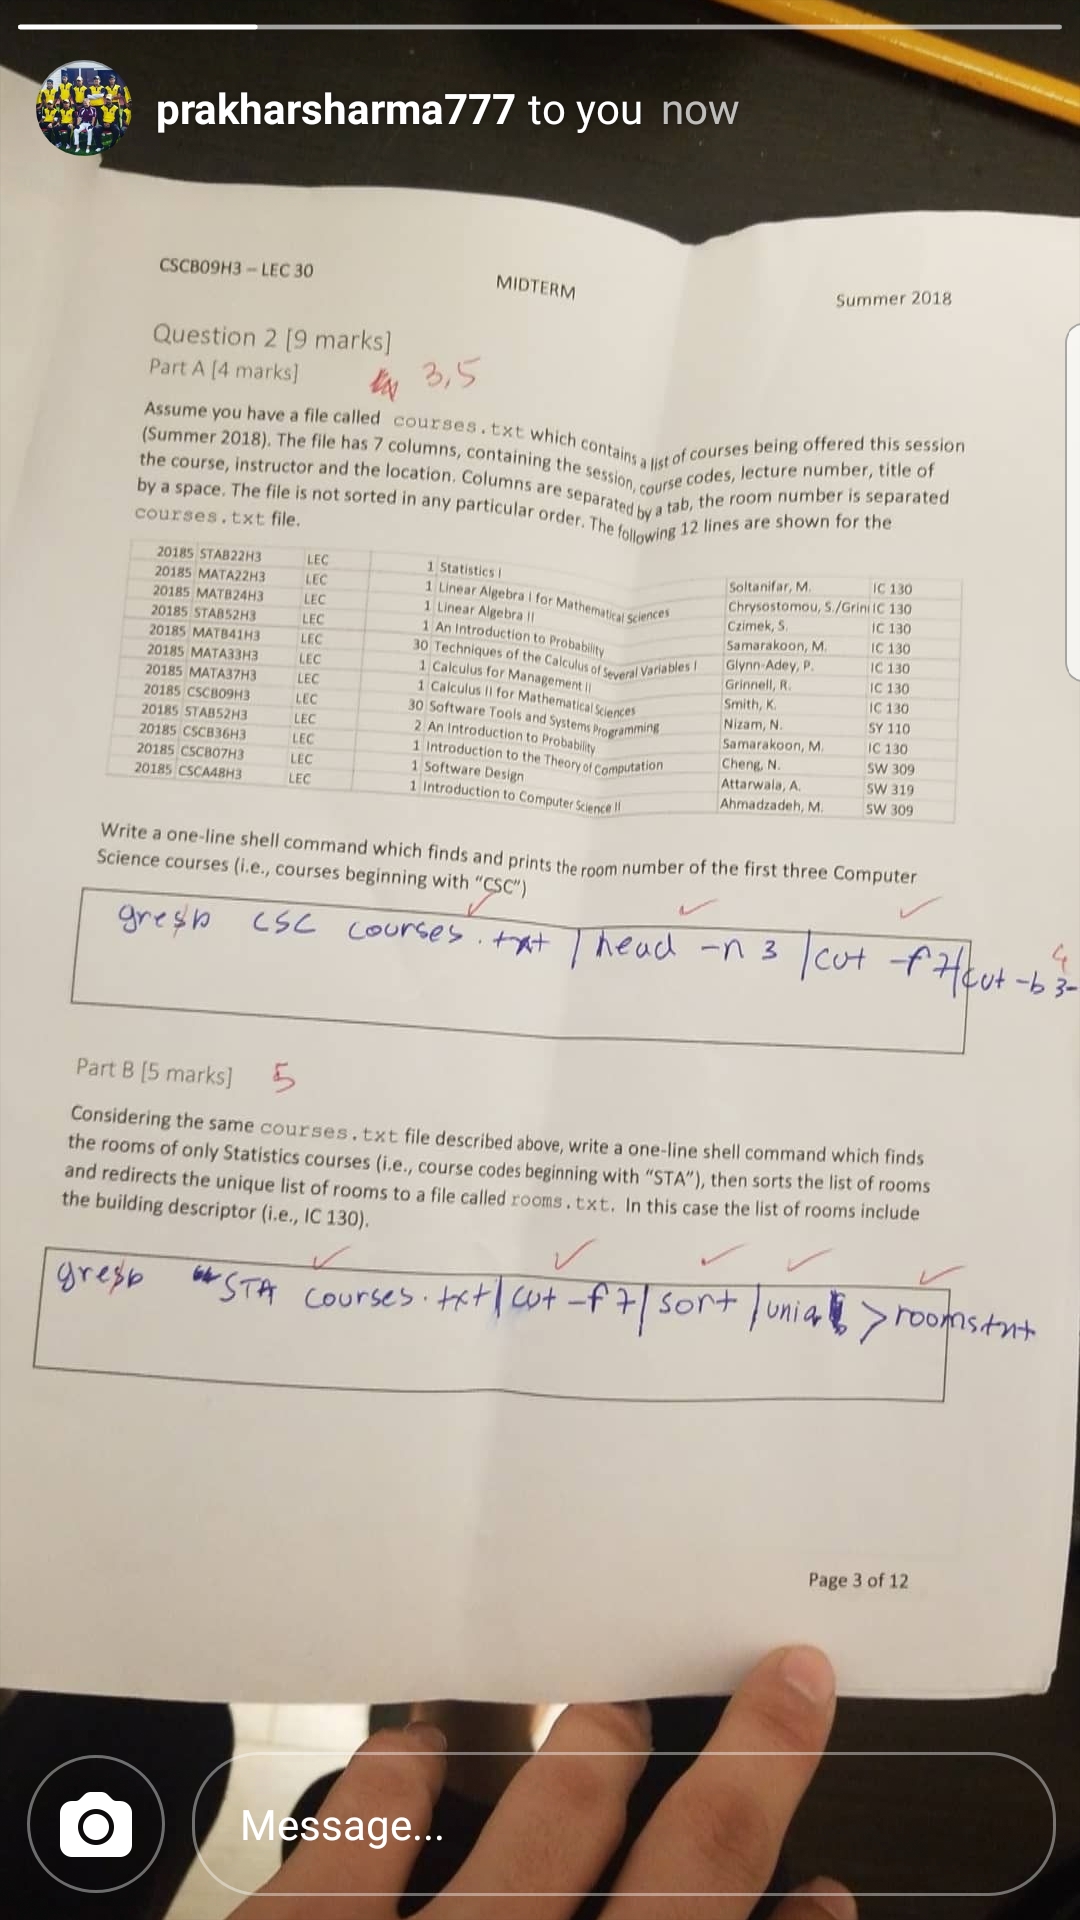 prakharsharma777 to you now
CSCB09H3 – LEC 30
MIDTERM
Summer 2018
Question 2 [9 marks]
Part A [4 marks]
3,5
Assume you have a file called courses.txt which contains a list of courses being offered this session
(Summer 2018). The file has 7 columns, containing the session, course codes, lecture number, title of
the course, instructor and the location. Columns are separated by a tab, the room number is separated
by a space. The file is not sorted in any particular order. The following 12 lines are shown for the
courses.txt file.
20185 STAB22H3 LEC 1 Statistics I Soltanifar, M. IC 130
20185 MATA22H3 LEC 1 Linear Algebra I for Mathematical Sciences Chrysostomou, S./Grini IC 130
20185 MATB24H3 LEC 1 Linear Algebra II Czimek, S. IC 130
20185 STAB52H3 LEC 1 An Introduction to Probability Samarakoon, M. IC 130
20185 MATB41H3 LEC 30 Techniques of the Calculus of Several Variables I Glynn-Adey, P. IC 130
20185 MATA33H3 LEC 1 Calculus for Management II Grinnell, R. IC 130
20185 MATA37H3 LEC 1 Calculus II for Mathematical Sciences Smith, K. IC 130
20185 CSCB09H3 LEC 30 Software Tools and Systems Programming Nizam, N. SY 110
20185 STAB52H3 LEC 2 An Introduction to Probability Samarakoon, M. IC 130
20185 CSCB36H3 LEC 1 Introduction to the Theory of Computation Cheng, N. SW 309
20185 CSCB07H3 LEC 1 Software Design Attarwala, A. SW 319
20185 CSCA48H3 LEC 1 Introduction to Computer Science II Ahmadzadeh, M. SW 309
Write a one-line shell command which finds and prints the room number of the first three Computer
Science courses (i.e., courses beginning with "CSC")
grep CSC courses.txt | head -n 3 | cut -f 7 | cut -b 3-
4
Part B [5 marks]
5
Considering the same courses.txt file described above, write a one-line shell command which finds
the rooms of only Statistics courses (i.e., course codes beginning with "STA"), then sorts the list of rooms
and redirects the unique list of rooms to a file called rooms.txt. In this case the list of rooms include
the building descriptor (i.e., IC 130).
grep STA courses.txt | cut -f 7 | sort | uniq > rooms.txt
Page 3 of 12
Message...